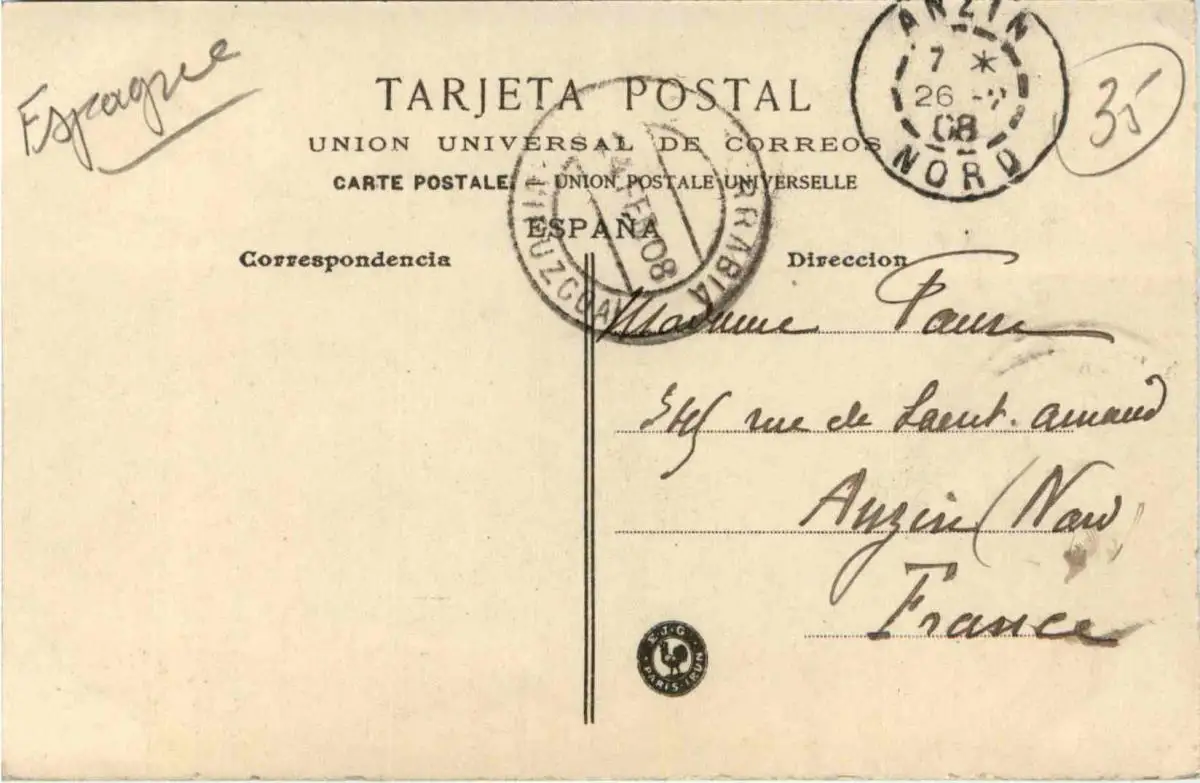 Espagne
TARJETA POSTAL
UNION UNIVERSAL DE CORREOS
CARTE POSTALE. - UNION POSTALE UNIVERSELLE
ESPAÑA
Correspondencia
Direccion
ANZIN
7 *
26 -
08
NORD
35
FEB 08
Madame Faure
rue de Saint. Amand
Anzin (Nord
France
E.J.G.
PARIS-IRUN